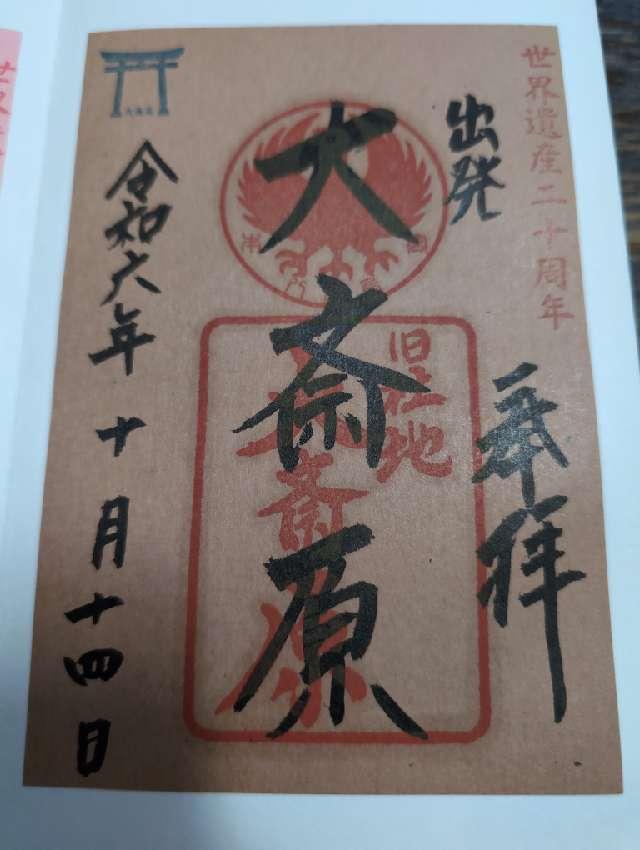 世界遺産二十周年
出発
奉拝
大斎原
旧社地
大斎原
令和六年十月十四日